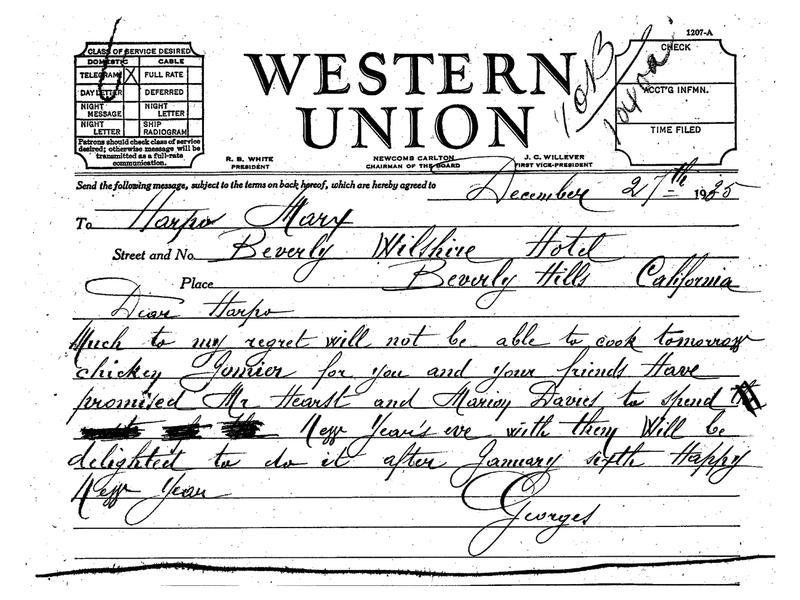 1207-A
CLASS OF SERVICE DESIRED
DOMESTIC CABLE
TELEGRAM X FULL RATE
DAY LETTER DEFERRED
NIGHT MESSAGE NIGHT LETTER
NIGHT LETTER SHIP RADIOGRAM
Patrons should check class of service
desired; otherwise message will be
transmitted as a full-rate
communication.
WESTERN
UNION
R. B. WHITE
PRESIDENT
NEWCOMB CARLTON
CHAIRMAN OF THE BOARD
J. C. WILLEVER
FIRST VICE-PRESIDENT
CHECK
ACCT'G INFMN.
TIME FILED
Send the following message, subject to the terms on back hereof, which are hereby agreed to
December 27th 1935
To Harpo Marx
Street and No. Beverly Wilshire Hotel
Place Beverly Hills California
Dear Harpo
Much to my regret will not be able to cook tomorrow
chicken Gunier for you and your friends Have
promised Mr Hearst and Marion Davies to spend
New Year's eve with them Will be
delighted to do it after January sixth Happy
New Year
Georges